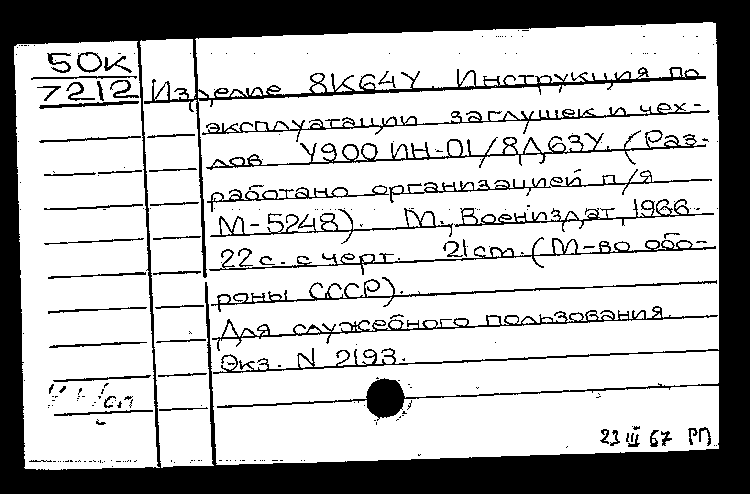 50К
7212 Изделие 8К64У Инструкция по
эксплуатации заглушек и чех-
лов У900 ИН-01/8Д63У. (Раз-
работано организацией п/я
М-5248). М., Воениздат, 1966.
22 с. с черт. 21 cm. (М-во обо-
роны СССР).
Для служебного пользования.
Экз. N 2193.
23 III 67 РП